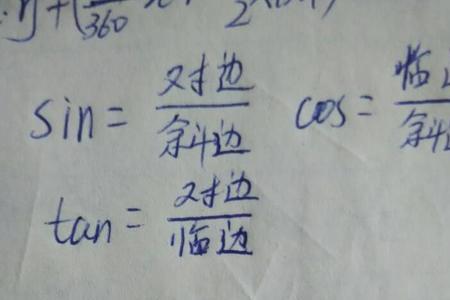 sin = 对边/斜边 cos = 临/斜
tan = 对边/临边